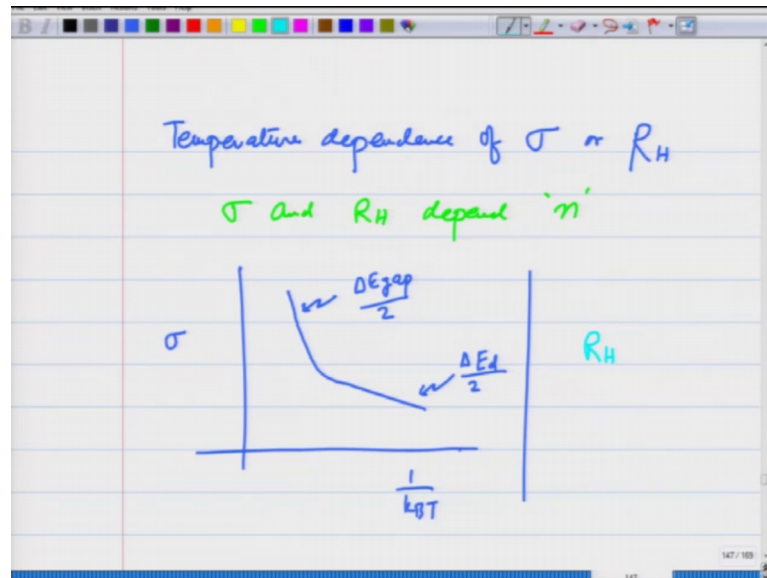 Temperature dependence of σ or R_H
σ and R_H depend 'n'
ΔEgap/2
σ
R_H
ΔEd/2
1/k_BT
147 / 169
147